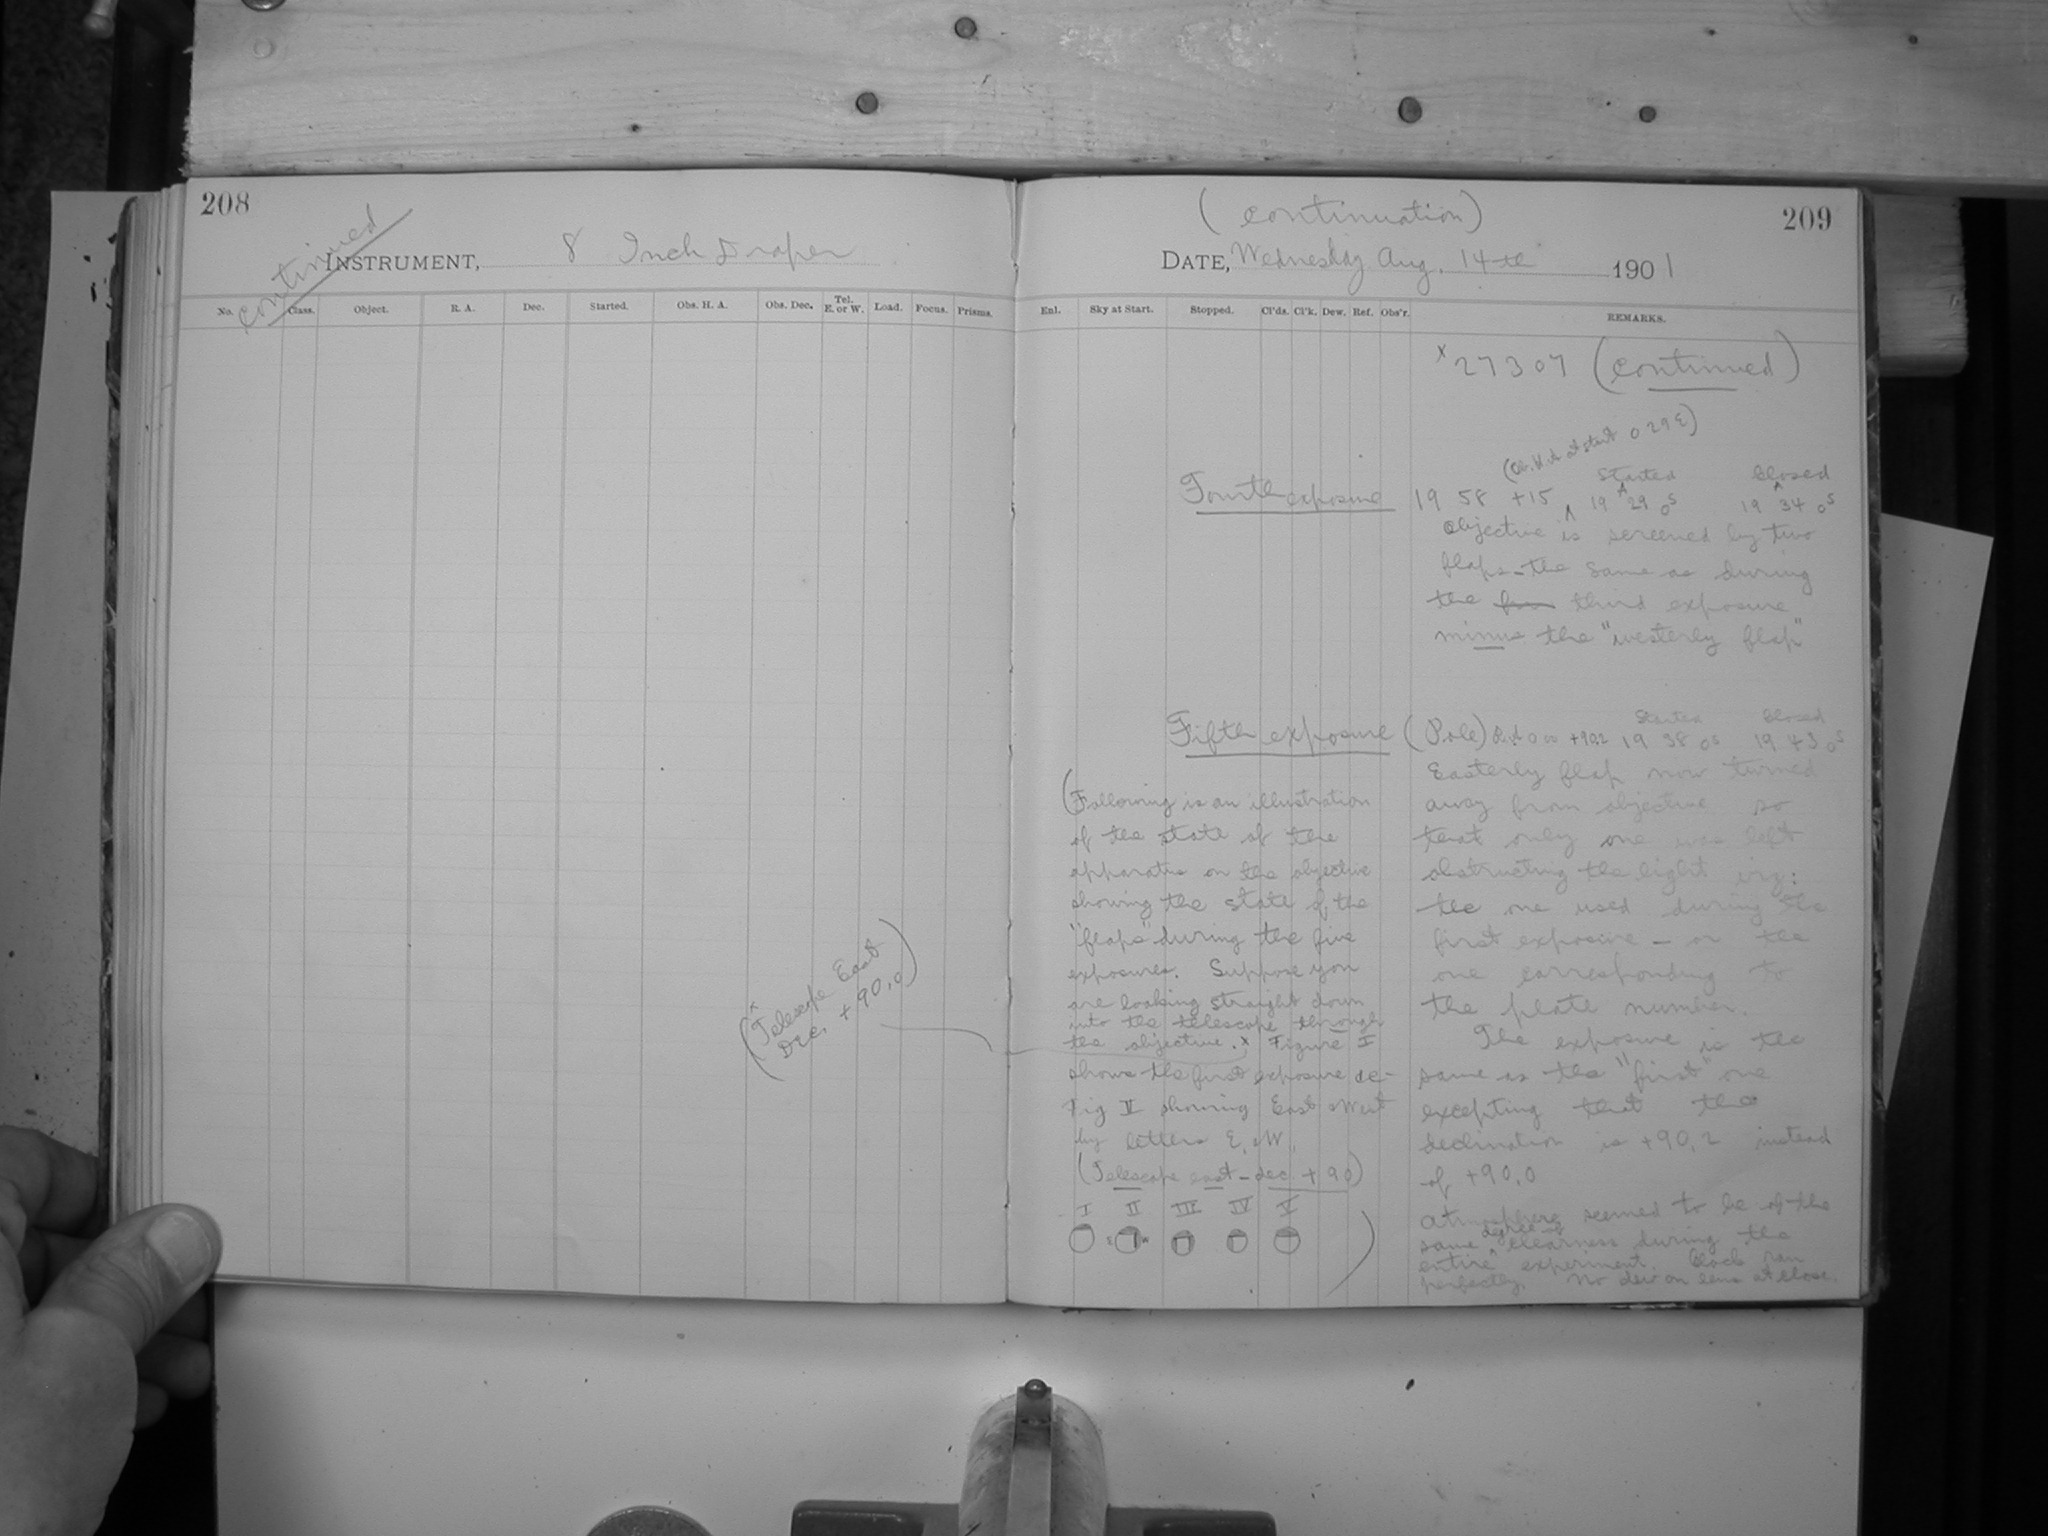 208
continued
INSTRUMENT, 8 Inch Draper
No. Class. Object. R. A. Dec. Started. Obs. H. A. Obs. Dec. Tel. E. or W. Load. Focus. Prisms.
(x Telescope East
Dec. +90,0)
(continuation)
209
DATE, Wednesday Aug. 14th 1901
Enl. Sky at Start. Stopped. Cl'ds. Cl'k. Dew. Ref. Obs'r. REMARKS.
x 27307 (continued)
(Ob. H.A. at start 0 29 E)
Started Closed
Fourth exposure 19 58 +15 19 29 0s 19 34 0s
Objective is screened by two
flaps - the same as during
the third exposure
minus the "westerly flap"
Started Closed
Fifth exposure (Pole) R.A. 0 00 +90.2 19 38 0s 19 43 0s
Easterly flap now turned
away from objective so
that only one was left
obstructing the light viz:
the one used during the
first exposure - or the
one corresponding to
the plate number.
The exposure is the
same as the "first" one
excepting that the
declination is +90,2 instead
of +90,0
Atmosphere seemed to be of the
same degree of clearness during the
entire experiment. Clock ran
perfectly. No dew on lens at close.
(Following is an illustration
of the state of the
apparatus on the objective
showing the state of the
"flaps" during the five
exposures. Suppose you
are looking straight down
into the telescope through
the objective. x Figure I
shows the first exposure &c-
Fig II showing East & West
by letters E. & W.
(Telescope east - dec +90)
I II III IV V
E W
)